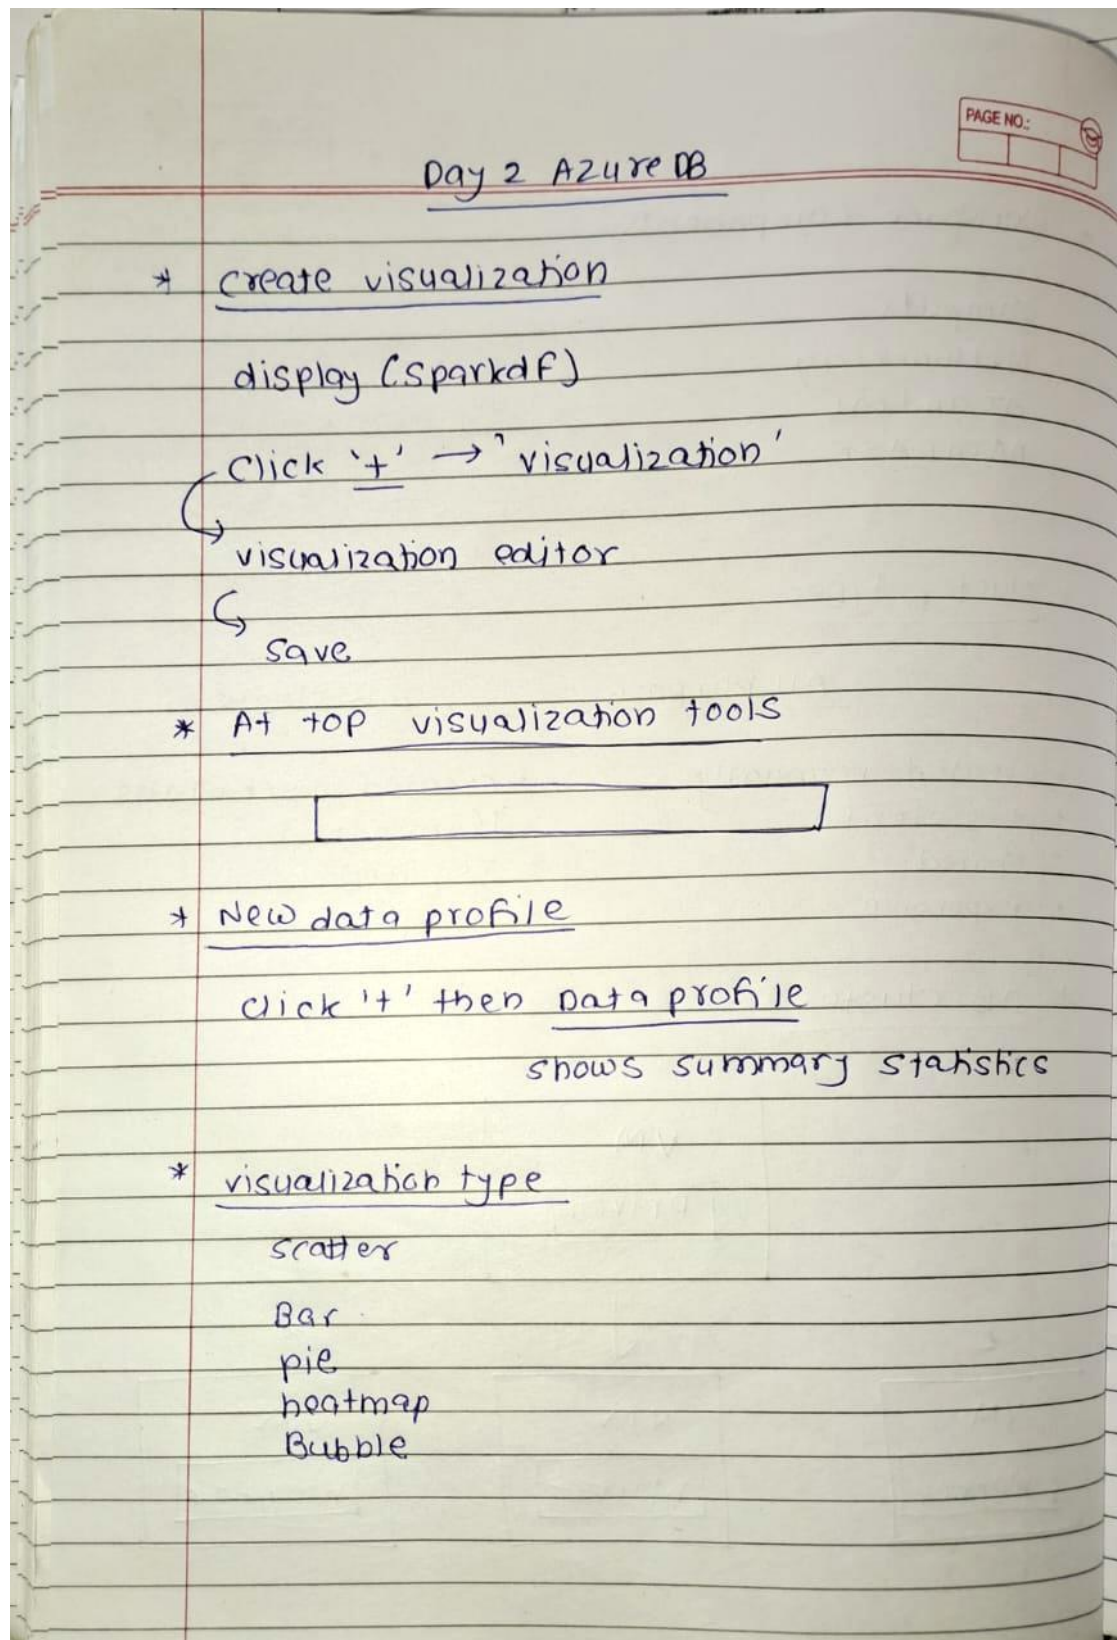 PAGE NO.:
Day 2 Azure DB
* create visualization
display (sparkdf)
click '+' → 'visualization'
visualization editor
save
* At top visualization tools
* New data profile
click '+' then Data profile
shows summary statistics
* visualization type
scatter
Bar
pie
heatmap
Bubble